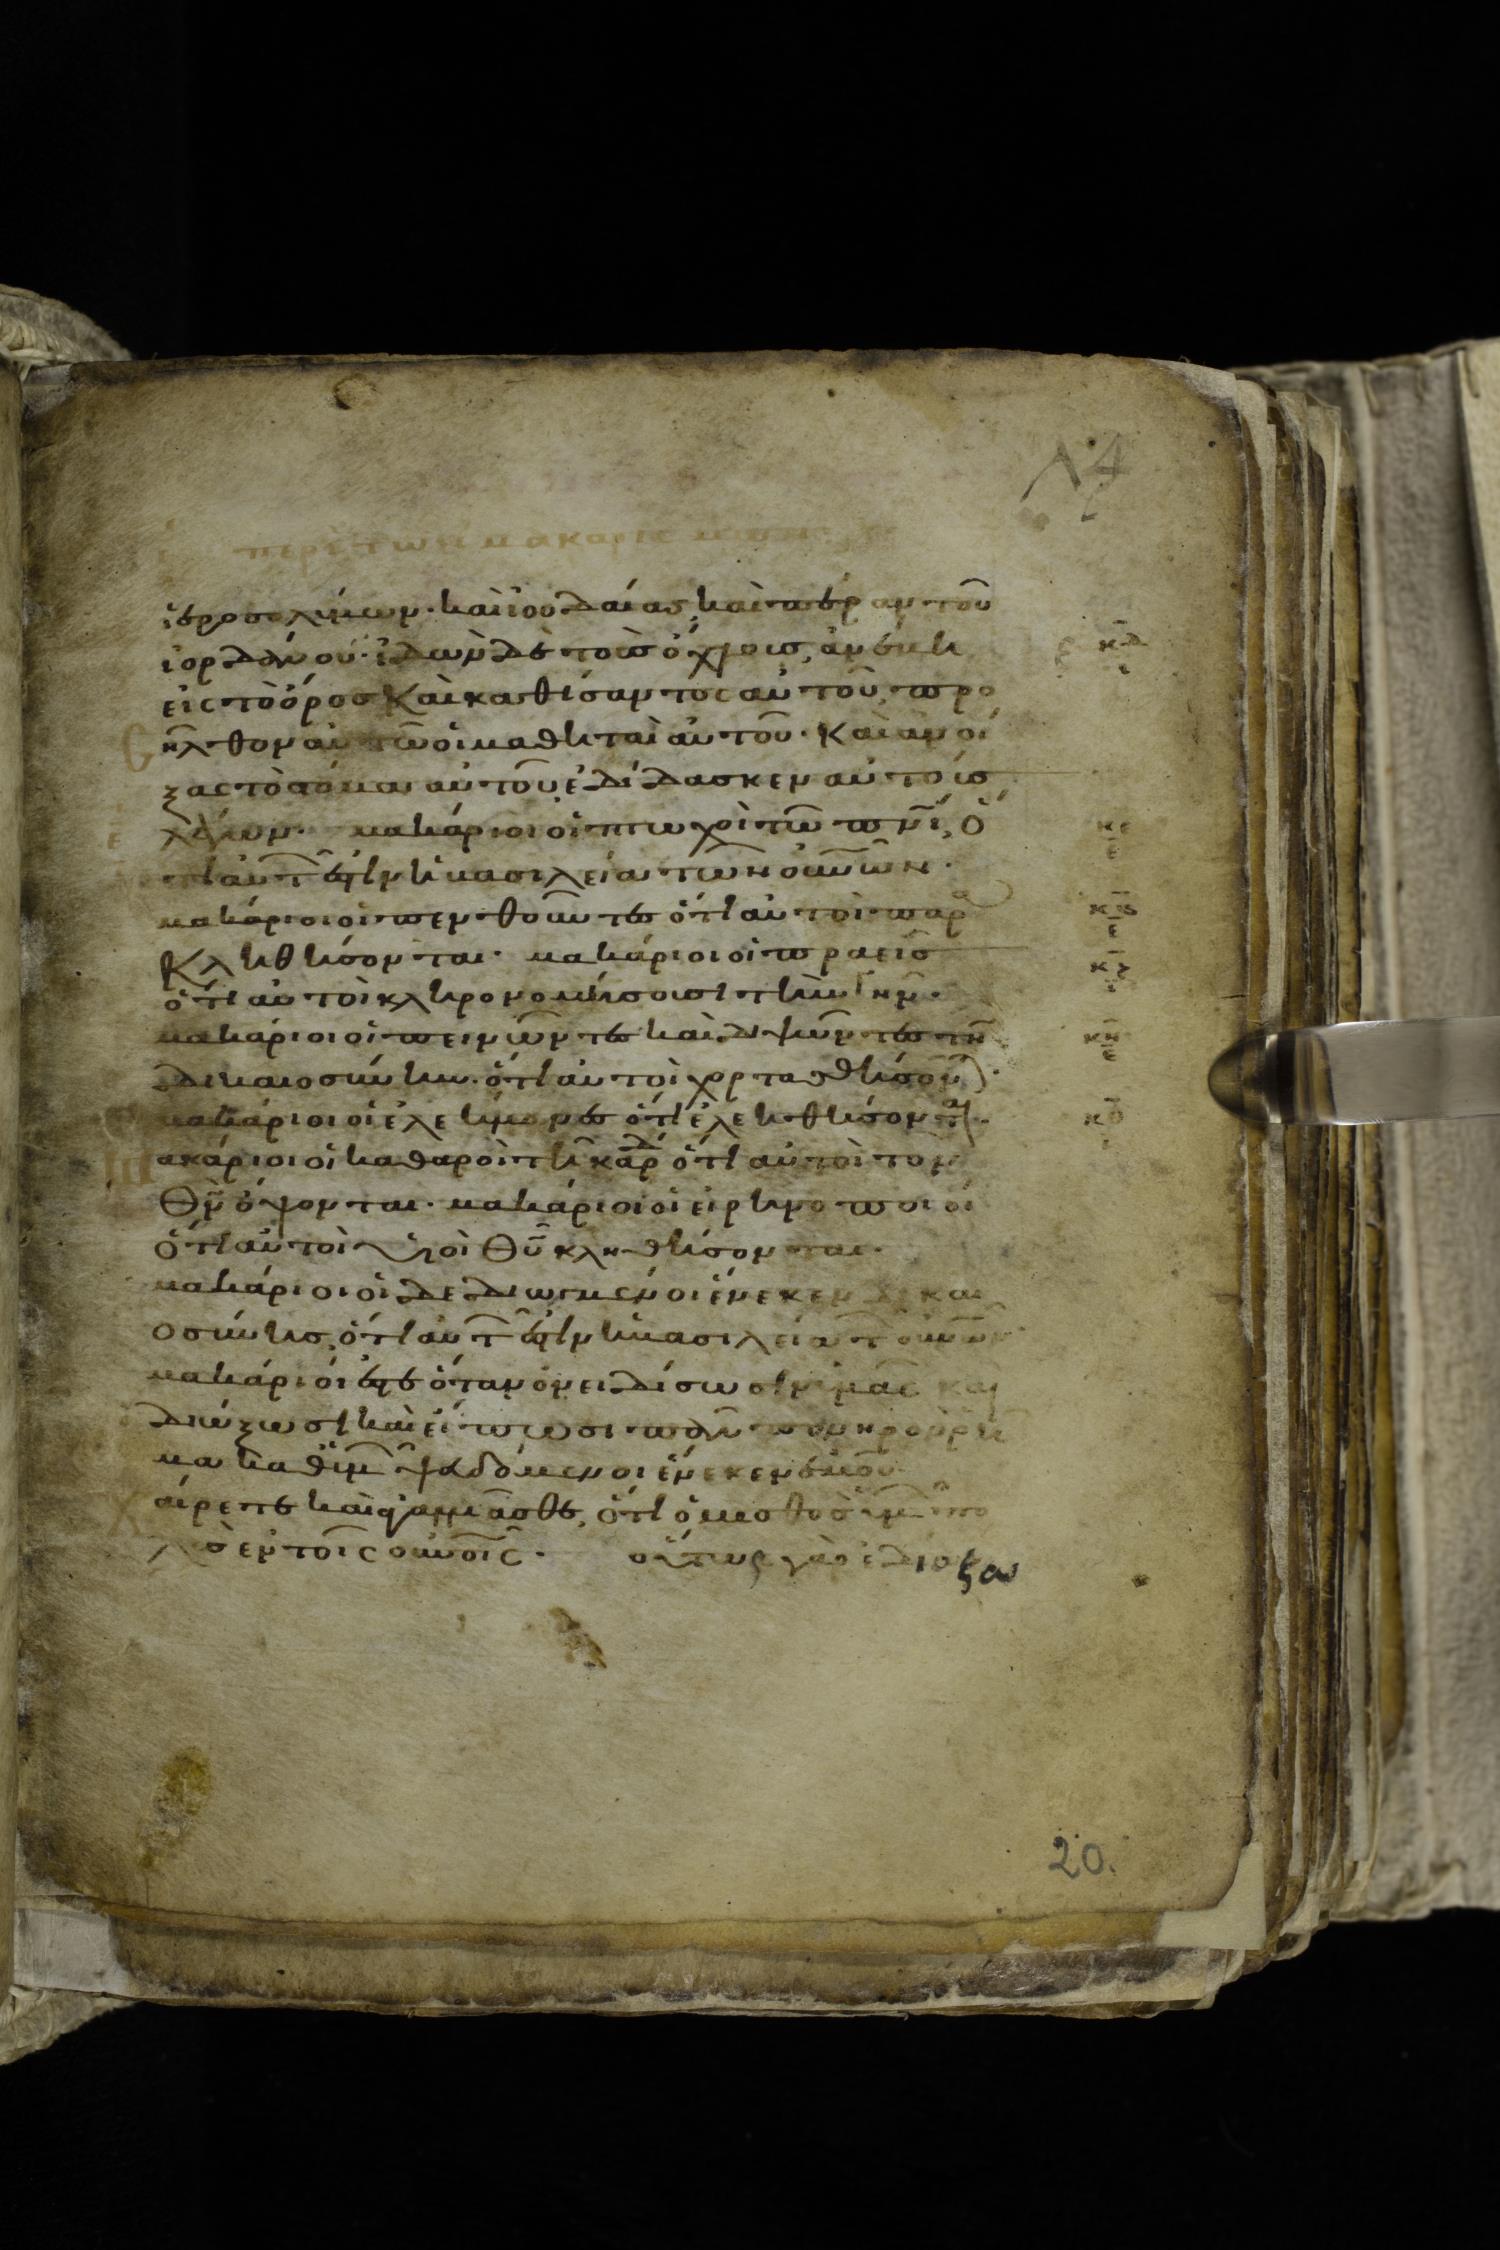 περὶ τῶν μακαρισμῶν
ἱεροσολύμων· καὶ ἰουδαίας, καὶ πέραν τοῦ
ἰορδάνου· ἰδὼν δὲ τοὺς ὄχλους, ἀνέβη
εἰς τὸ ὄρος καὶ καθίσαντος αὐτοῦ, προ
ῆλθον αὐτῶ οἱ μαθηταὶ αὐτοῦ· Καὶ ἀνοί
ξας τὸ στόμα αὐτοῦ, ἐδίδασκεν αὐτοὺς
λέγων· μακάριοι οἱ πτωχοὶ τῶ πνι, ὅ
τι αὐτ ἐστὶν ἡ βασιλεία τῶν οὐνῶν·
μακάριοι οἱ πενθοῦντες ὅτι αὐτοὶ παρ
κληθήσονται· μακάριοι οἱ πραεῖς
ὅτι αὐτοὶ κληρονομήσουσι τὴν γῆν·
μακάριοι οἱ πεινῶντες καὶ διψῶντες τὴν
δικαιοσύνην· ὅτι αὐτοὶ χορτασθήσον·
μακάριοι οἱ ἐλεήμονες ὅτι ἐλεηθήσονται·
ακάριοι οἱ καθαροὶ τῆ καρδ ὅτι αὐτοὶ τὸν
Θν ὄψονται· μακάριοι οἱ εἰρηνοποιοί
ὅτι αὐτοὶ υἱοὶ Θυ κληθήσονται·
μακάριοι οἱ δεδιωγμένοι ἕνεκεν δικαι
οσύνης, ὅτι αὐτ ἐστὶν ἡ βασιλεία τ οὐνῶν·
μακάριοί ἐστε ὅταν ὀνειδίσωσιν ὑμᾶς καὶ
διώξωσι καὶ εἴπωσι πᾶν πονηρὸν ῥῆ
μα καθ ὑμ ψευδόμενοι ἕνεκεν ἐμοῦ·
αίρετε καὶ ἀγαλλιᾶσθε, ὅτι ὁ μισθὸς ὑμ πο
λὺς ἐν τοῖς οὐνοῖς· οὕτως γὰρ ἐδίωξαν
κδ
κε
ε
κς
ε
κζ
κη
ε
κθ
20.